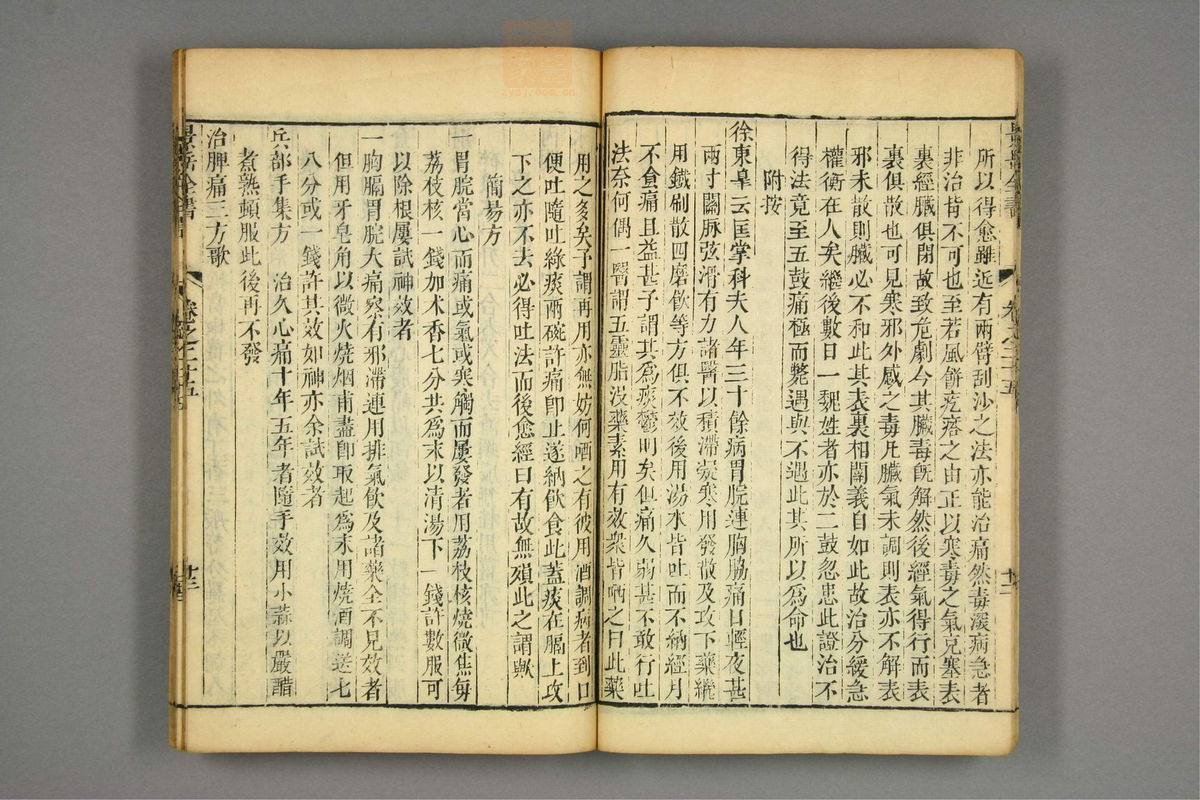 所以得愈雖近有兩臂刮沙之法亦能治痛然毒深病急者
非治背不可也至若風餅疙瘩之由正以寒毒之氣克塞表
裏經臟俱閉故致危劇今其臟毒旣解然後經氣得行而表
裏俱散也可見寒邪外感之毒凡臟氣未調則表亦不解表
邪未散則臟必不和此其表裏相關義自如此故治分緩急
權衡在人矣繼後數日一魏姓者亦於二鼓忽患此證治不
得法竟至五鼓痛極而斃遇與不遇此其所以為命也
附按
徐東臯云匡掌科夫人年三十餘病胃脘連胸脇痛日輕夜甚
兩寸關脉弦滑有力諸醫以積滯凝寒用發散及攻下藥繼
用鐵刷散四磨飲等方俱不效後用湯水皆吐而不納經月
不食痛且益甚予謂其為痰鬱明矣但痛久弱甚不敢行吐
法奈何偶一醫謂五靈脂沒藥素用有效衆皆哂之曰此藥
用之多矣予謂再用亦無妨何哂之有彼用酒調病者到口
便吐隨吐綠痰兩碗許痛卽止遂納飲食此蓋痰在膈上攻
下之亦不去必得吐法而後愈經曰有故無殞此之謂歟
簡易方
一胃脘當心而痛或氣或寒觸而屢發者用荔枝核燒微焦每
荔枝核一錢加木香七分共為末以清湯下一錢許數服可
以除根屢試神效者
一胸膈胃脘大痛察有邪滯連用排氣飲及諸藥全不見效者
但用牙皂角以微火燒烟甫盡卽取起為末用燒酒調送七
八分或一錢許其效如神亦余試效者
兵部手集方 治久心痛十年五年者隨手效用小蒜以嚴醋
煮熟頓服此後再不發
治脾痛三方歌
景岳全書
卷之二十五
廿三